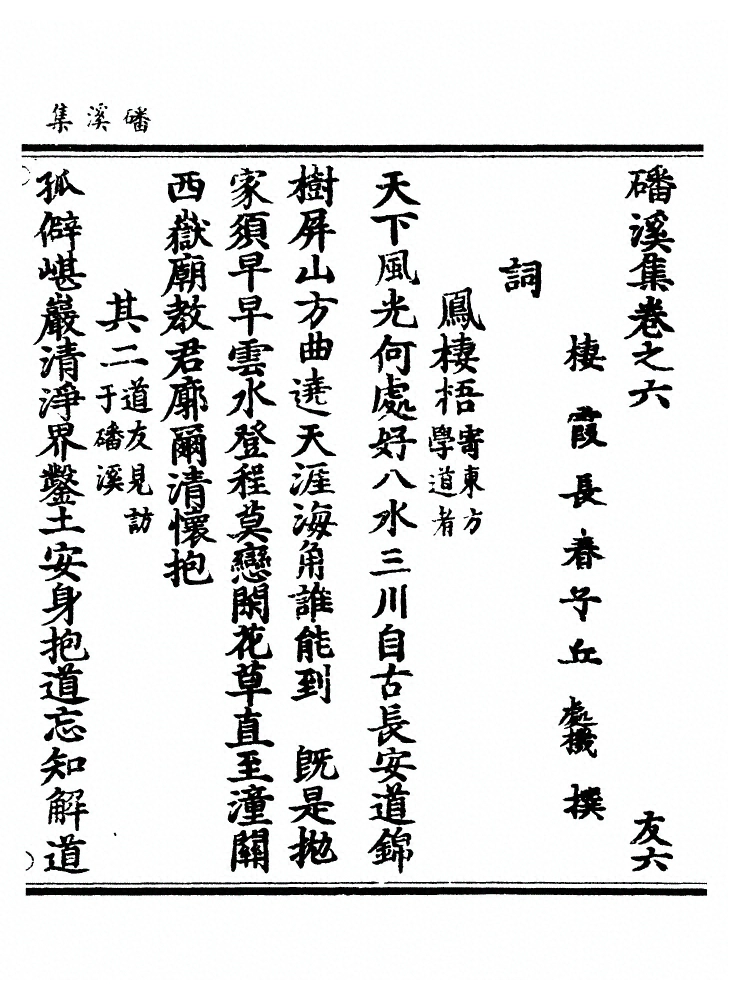 磻溪集
磻溪集卷之六 友六
棲霞長春子丘處機撰
詞
鳳棲梧 寄東方學道者
天下風光何處好八水三川自古長安道錦
樹屏山方曲遶天涯海角誰能到 既是抛
家須早早雲水登程莫戀閑花草直至潼關
西嶽廟教君廓爾清懷抱
其二 道友見訪于磻溪
孤僻嵁巖清淨界鑿土安身抱道忘知解道